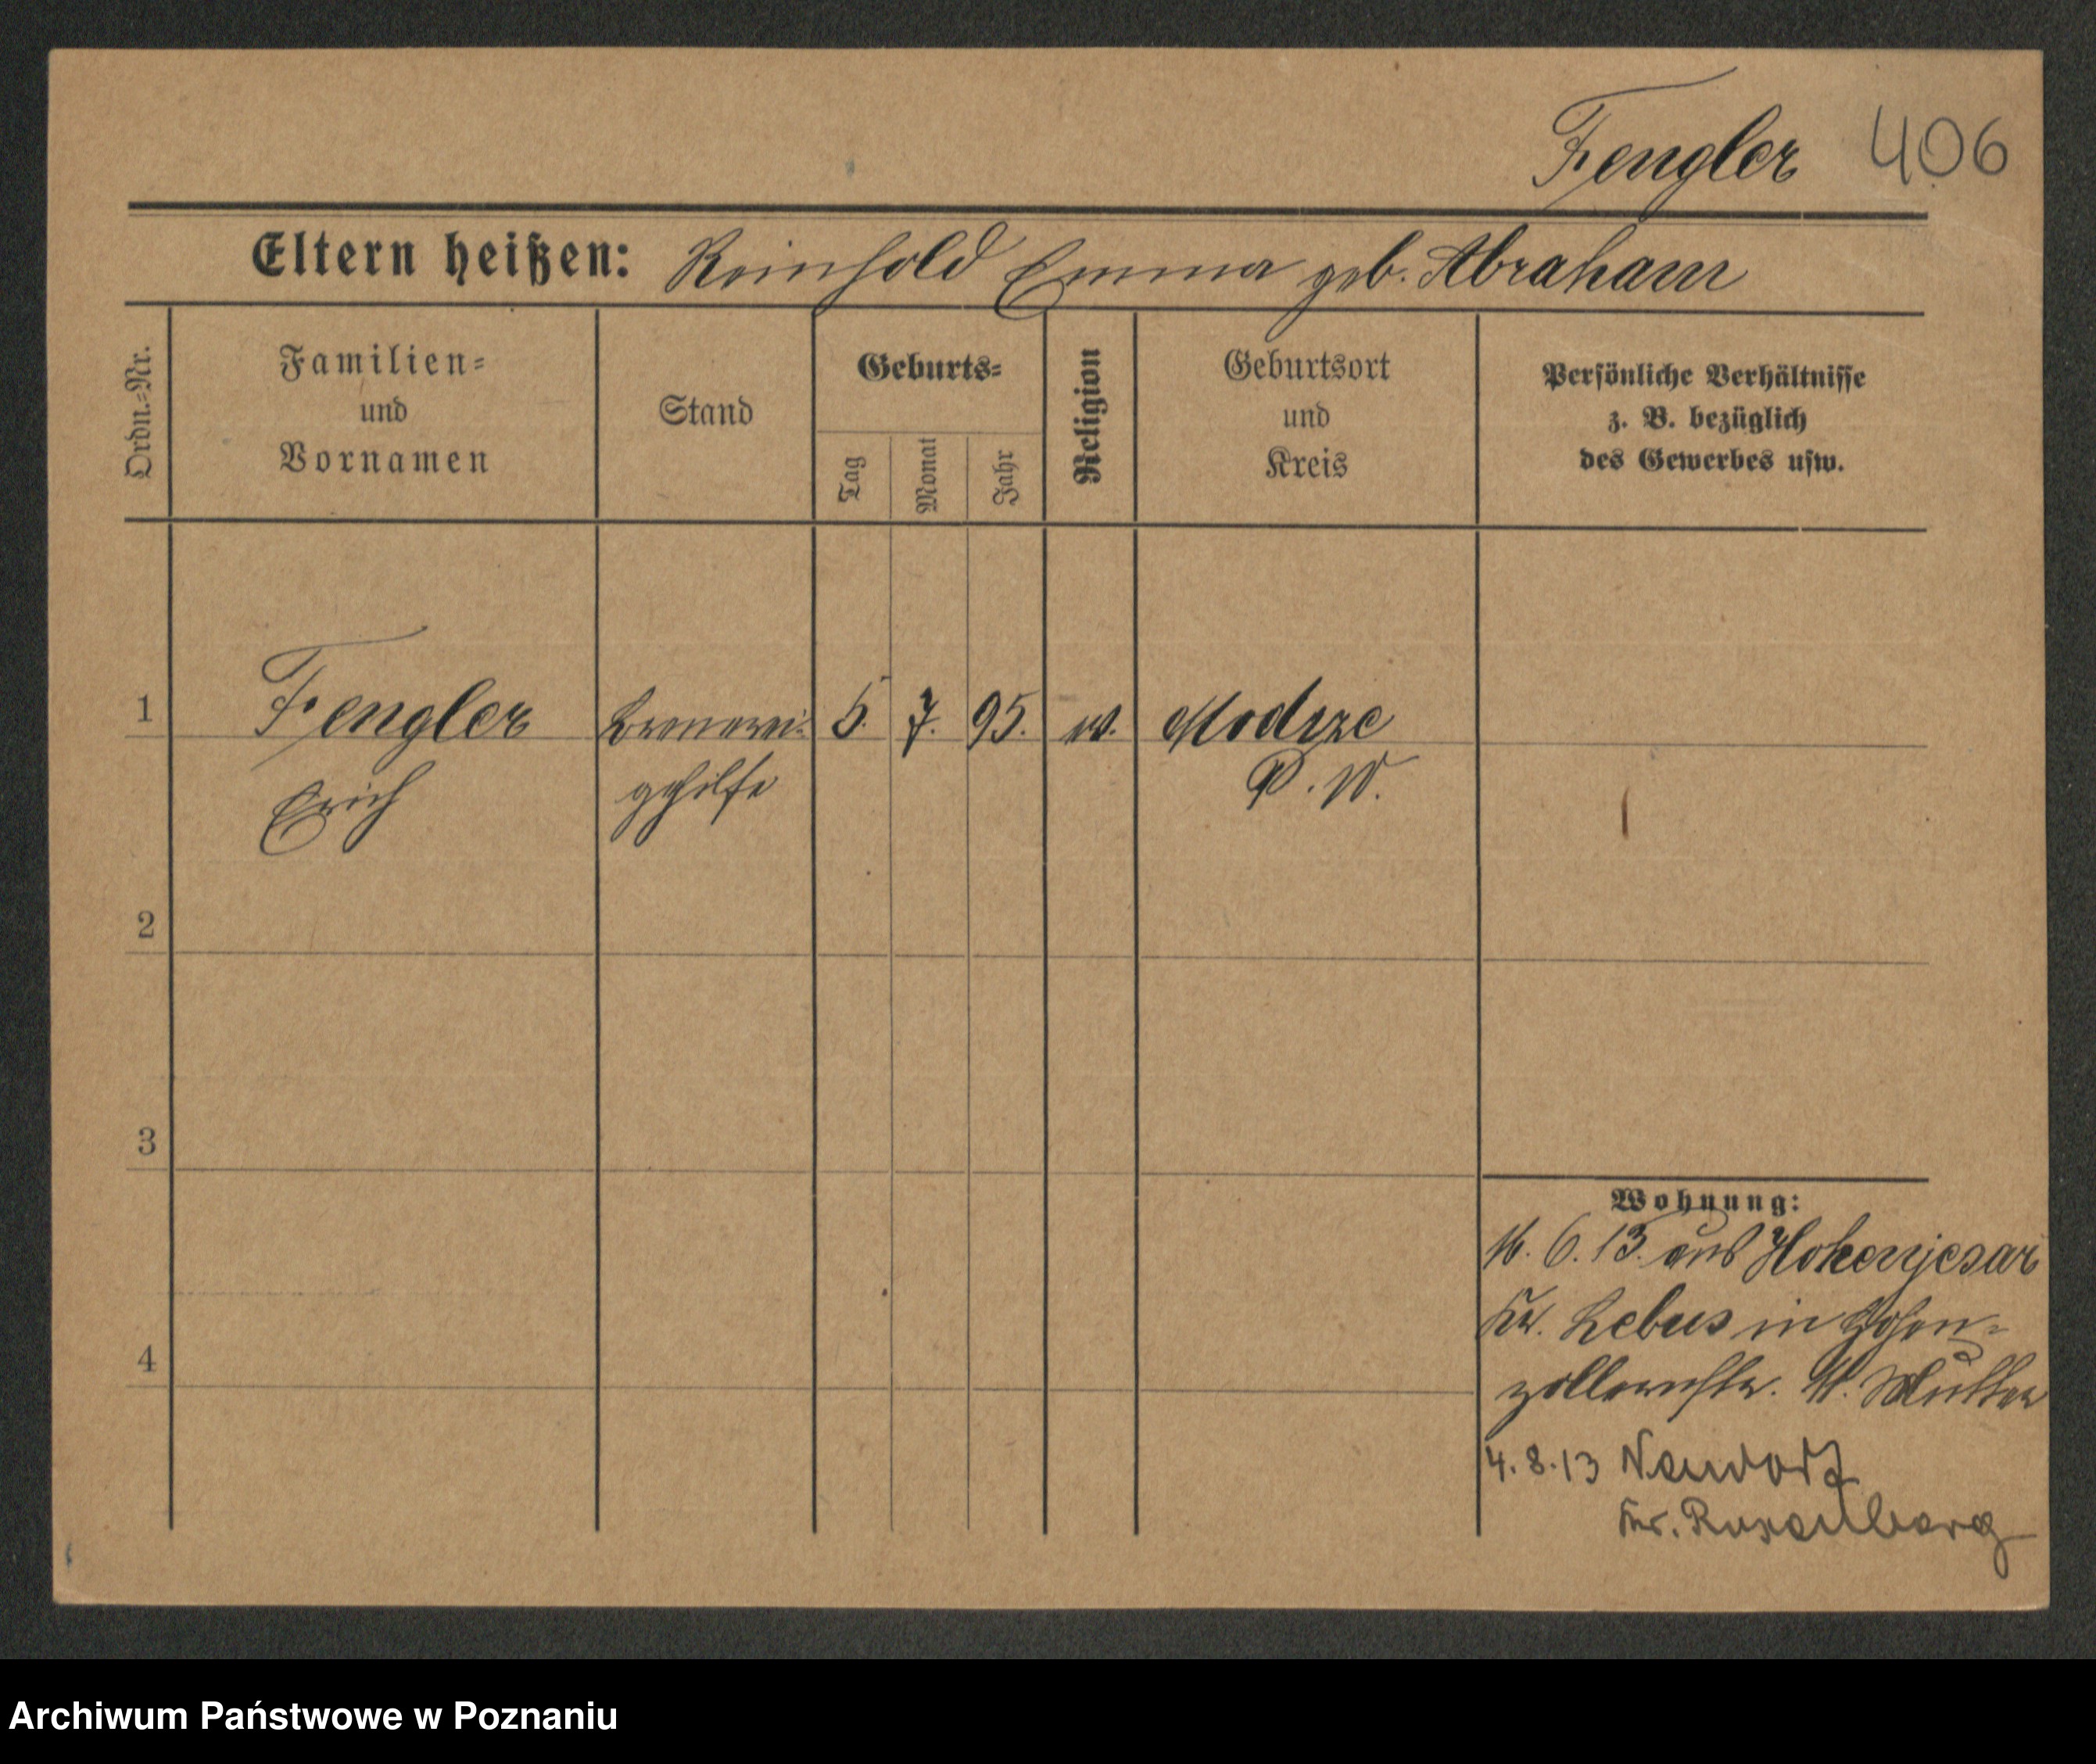 Fengler 406
Eltern heißen: Reinhold Emma geb. Abraham
Ordn.=Nr.
Familien=
und
Vornamen
Stand
Geburts=
Tag
Monat
Jahr
Religion
Geburtsort
und
Kreis
Persönliche Verhältnisse
z. B. bezüglich
des Gewerbes usw.
1 Fengler Brennerei= 5. 7. 95. ev. Modrze
Erich gehilfe P. W.
2
3
4
Wohnung:
16. 6. 13. aus Hohenjesar
Kr. Lebus in Hohen=
zollernstr. Mutter
4. 8. 13 Neudorf
Kr. Rosenberg
Archiwum Państwowe w Poznaniu